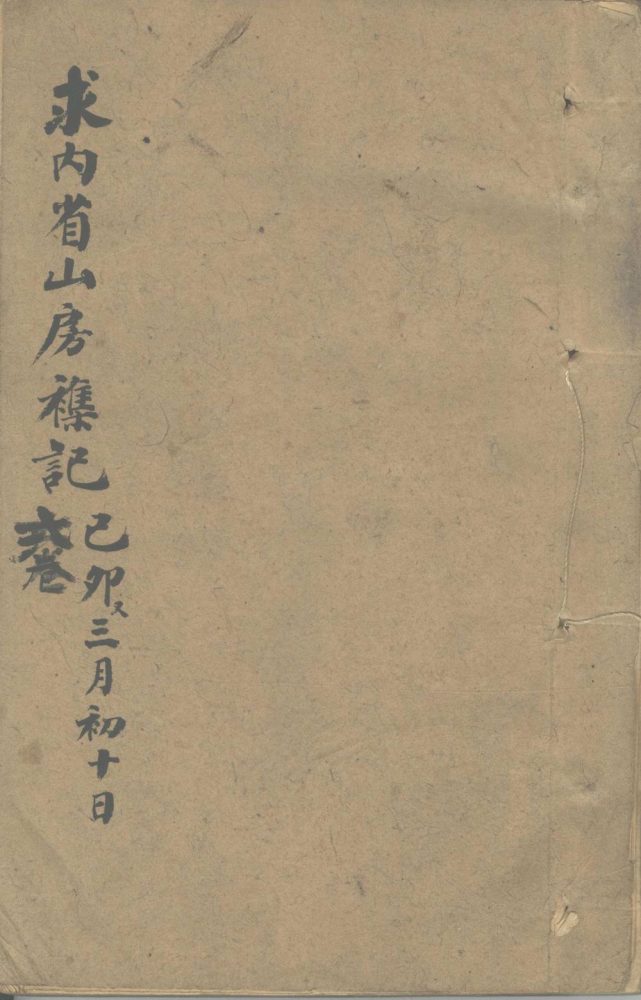 求内省山房襍記
卷
己卯又三月初十日